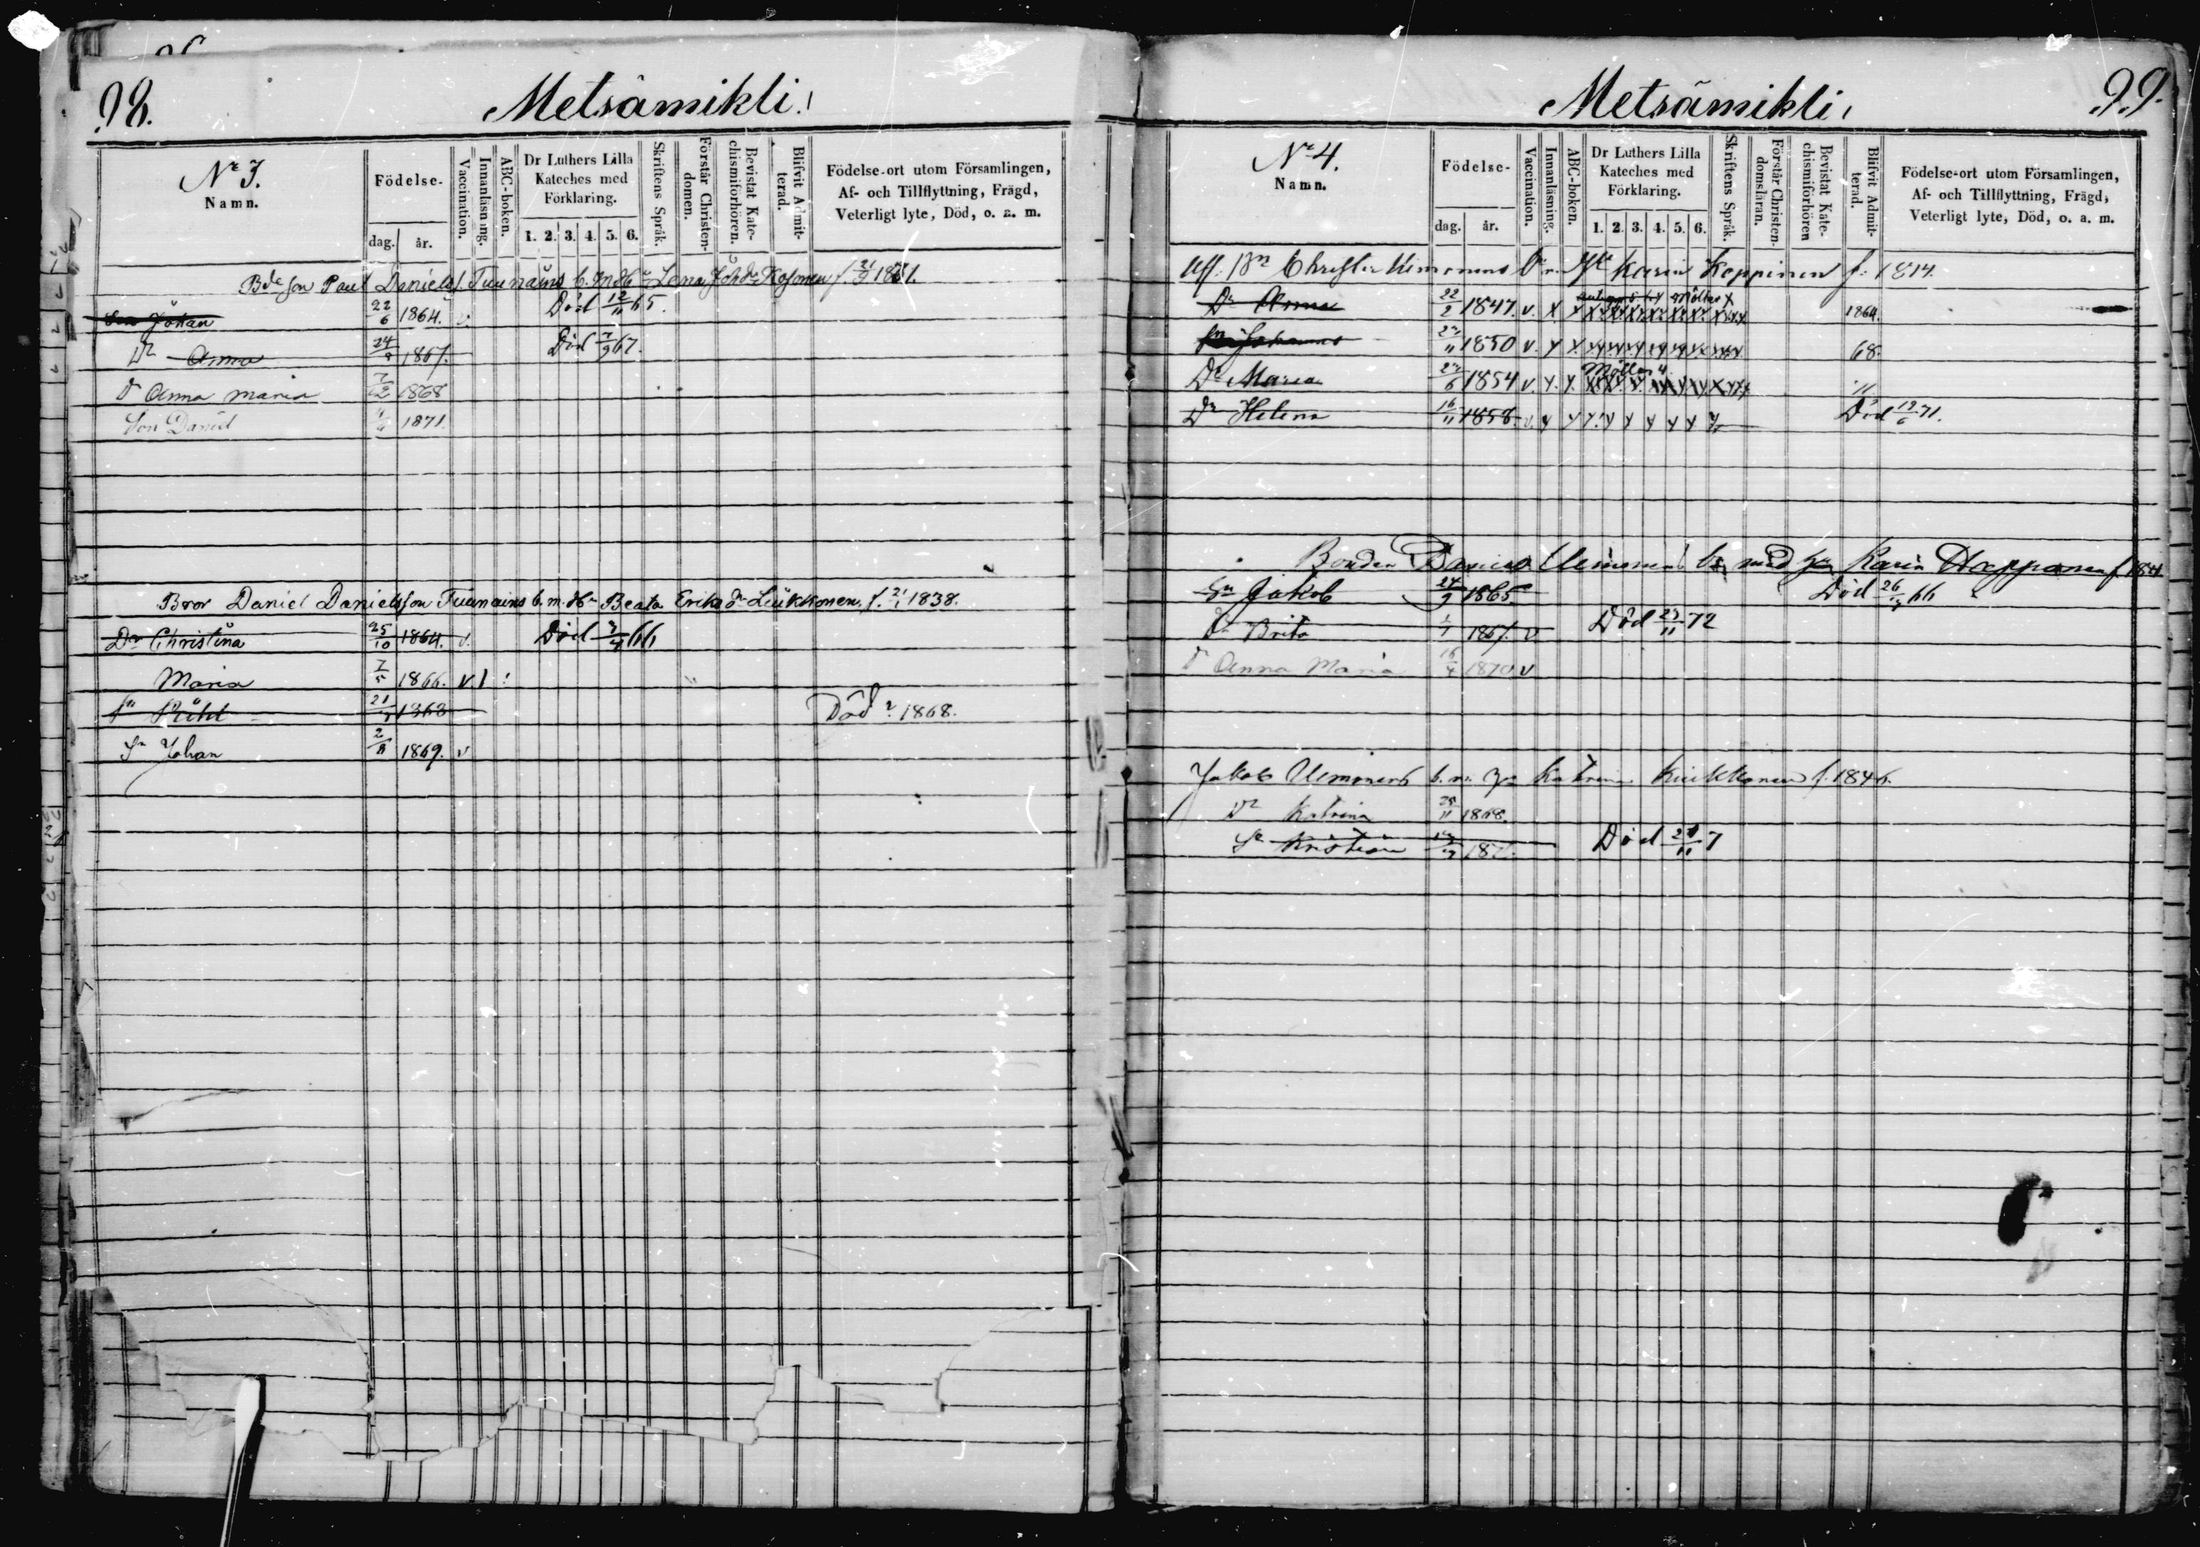 98.
Metsämikli.
No 3.
Namn.
Födelse-
dag. år.
Vaccination.
Innanläsning.
ABC-boken.
Dr Luthers Lilla
Kateches med
Förklaring.
1. 2. 3. 4. 5. 6.
Skriftens Språk.
Förstår Christen-
domen.
Bevistat Kate-
chismiförhören.
Blifvit Admit-
terad.
Födelse-ort utom Församlingen,
Af- och Tillflyttning, Frägd,
Veterligt lyte, Död, o. a. m.
Bde Son Paul Daniels. Tuunains b. m H Lena Joh dr Kosonen f. 21/9
Son Johan 22/6 1864. v. Död 12/11 65.
Dr Anna 24/ 1867. Död 7/9 67.
Dr Anna Maria 7/12 1868
Son David 1871
Bror Daniel Danielsson Tuunains b. m. H Beata Eriks dr Leükkonen, f. 21/1 1838.
Dr Christina 25/10 1864. v. Död 66
Maria 7/5 1866. v. 1
Sn 21/ 1868 Död 1868.
Sn Johan 2/8 1869. v
99.
Metsämikli.
No 4.
Namn.
Födelse-
dag. år.
Vaccination.
Innanläsning.
ABC-boken.
Dr Luthers Lilla
Kateches med
Förklaring.
1. 2. 3. 4. 5. 6.
Skriftens Språk.
Förstår Christen-
domsläran.
Bevistat Kate-
chismiförhören
Blifvit Admit-
terad.
Födelse-ort utom Församlingen,
Af- och Tillflyttning, Frägd,
Veterligt lyte, Död, o. a. m.
Aff. Bn Christer Uimonens Karin Koppinen f. 1814.
Dr Anna 22/2 1847. v. x x 1864.
Sn Johannes /11 1850 v. x x 68.
Dr Maria /6 1854 v. x. x.
Dr Helena 16/11 1858. v x x x x x x x x Död 19/6 71.
Bonden Daniel Uimonens b. med Karin Happonen f. 1841
Sn Jakob 24/9 1865 Död 26/ 66
Dr Brita 1867. v Död 23/11 72
Dr Anna Maria 16/4 1870 v
Jakob Uimonens b. m. Katrina Kuikkonen f. 1846.
Dr Katrina 25/11 1868.
Sn Kristian Död /11 7